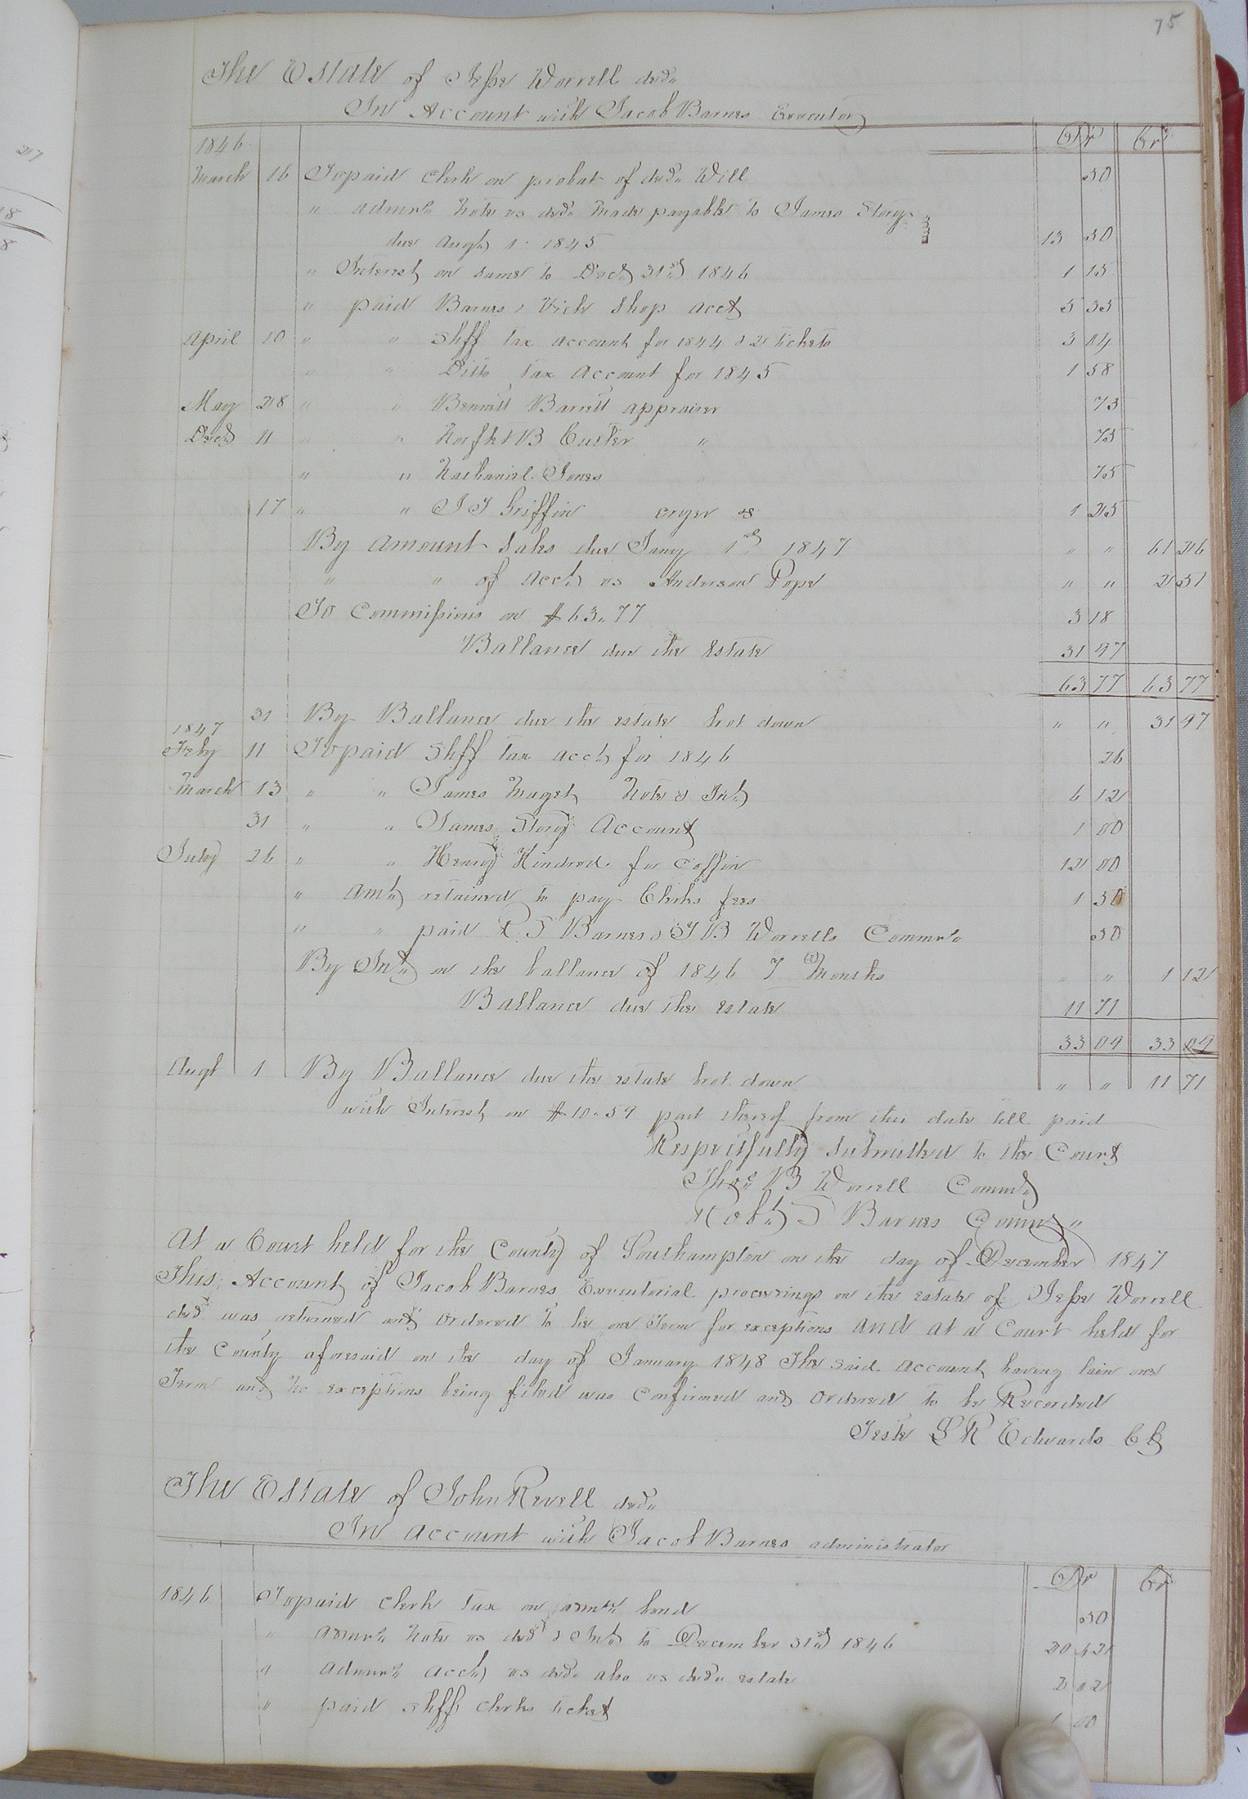 75
The Estate of Jesse Worrell decd.
In Account with Jacob Barnes Executor
1846 Dr Cr
March 16 To paid Clerk on probat of decd. Will .50
" admr. Note vs decd. made payable to James Story
due Augt 1. 1845 13 50
" Interest on same to Decr 31st 1846 1 13
" paid Barnes & Vick Shop acct 5 35
April 10 " " Shff tax account for 1844 & 2 tickets 3 04
" " Ditto tax Account for 1845 1 58
May 28 " " Bennett Barrett appraiser 75
Decr 11 " " B " 75
" " Nathaniel Jones 75
17 " " J J Griffin cryer &c 1 25
By amount Sales due Jany 1st 1847 " " 61 26
" " of acct. vs Anderson Pope " " 2 51
To Commissions on $63.77 3 18
Ballance due the Estate 31 97
63 77 63 77
31 By Ballance due the estate bot down " " 31 97
1847
Feby 11 To paid Shff tax acct for 1846 26
March 13 " " James Maget Note & Int. 6 12
31 " " James Story Account 1 00
July 26 " " Henry Kindred for Coffin 12 00
" Amt. retained to pay Clerks fees 1 50
" " paid R T Barnes & T B Worrells Commrs. .50
By Int. on the ballance of 1846 7 Months " " 1 12
Ballance due the estate 11 71
33 09 33 09
Augt 1 By Ballance due the estate bot down " " 11 71
with Interest on $10.59 part thereof from this date till paid
Respectfully Submitted to the Court
Thos. B Worrell Commr.
Robt. T Barnes Commr "
At a Court held for the County of Southampton on the day of December 1847
This Account of Jacob Barnes Executorial proceedings on the estate of Jesse Worrell
decd was returned and ordered to lie one Term for exceptions and at a Court held for
the County aforesaid on the day of January 1848 The said account having lain one
Term and no exceptions being filed was Confirmed and Ordered to be Recorded
Teste L R Edwards Ck
The Estate of John Revell decd.
In account with Jacob Barnes administrator
Dr Cr
1846 To paid clerk tax on admr. bond .50
" admr. Note vs decd. & Int. to December 31st 1846 20 42
" admr. acct. vs decd. also vs decd. estate 2 02
" paid Shff clerks ticket 1 00